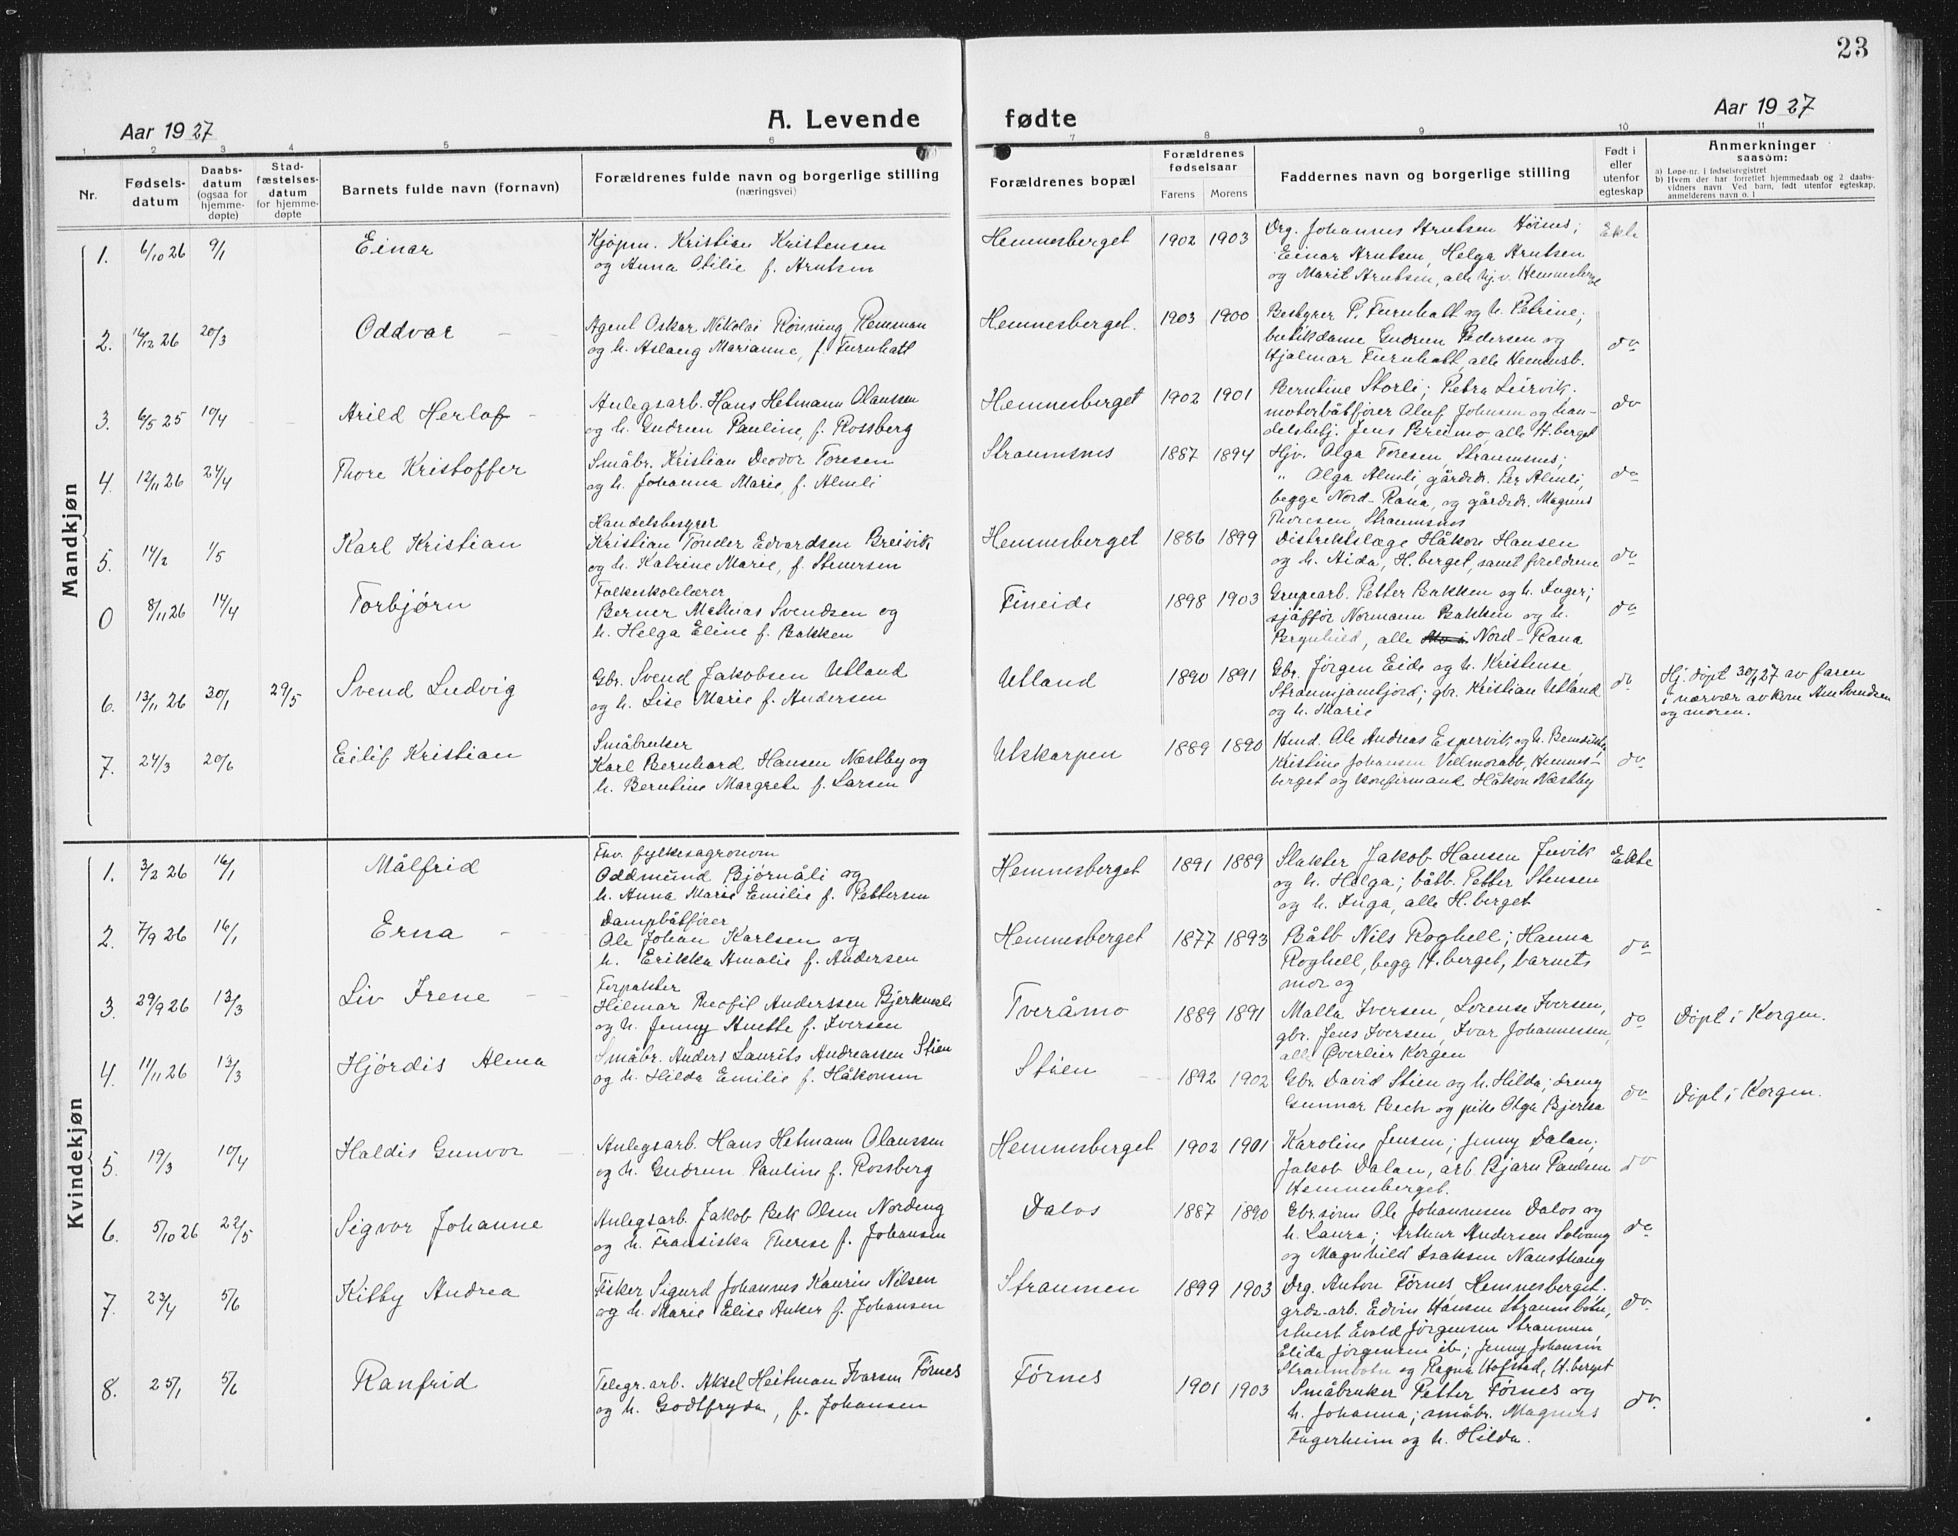 23
Aar 1927
A. Levende
fødte
Aar 1927
1 2 3 4 5 6 7 8 9 10 11
Nr.
Fødsels-
datum
Daabs-
datum
(ogsaa for
hjemme-
døpte)
Stad-
fæstelses-
datum
for hjemme-
døpte
Barnets fulde navn (fornavn)
Forældrenes fulde navn og borgerlige stilling
(næringsvei)
Forældrenes bopæl
Forældrenes
fødselsaar
Farens Morens
Faddernes navn og borgerlige stilling
Født i
eller
utenfor
egteskap
Anmerkninger
saasom:
a) Løpe-nr. i fødselsregistret
b) Hvem der har forrettet hjemmedaab og 2 daabs-
vidners navn Ved barn, født utenfor egteskap,
anmelderens navn o. l
Mandkjøn
1. 6/10 26 9/1 Einar
Kjøpm. Kristian Kristensen
og Anna Otilie f. Arntsen
Hemnesberget 1902 1903
Drg. Johannes Arntsen Hörnes;
Einar Arntsen, Helga Arntsen
og Marit Arntsen, alle hj.v. Hemnesberget
Ekte
2. 16/12 26 20/3 Oddvar
Agent Oskar Nikolai Rönning, Remman
og h. Aslaug Marianne, f. Furuhatt
Hemnesberget. 1903 1900
Bestyrer P. Furuhatt og h. Petrine;
butikdame Gudrun Pedersen og
Hjalmar Furuhatt, alle Hemnesb.
do
3. 6/5 25 10/4 Arild Herlof
Anlegsarb. Hans Hetmann Olaussen
og h. Gudrun Pauline, f. Rossberg
Hemnesberget 1902 1901
Berntine Storli; Petra Leirvik;
motorbåtfører Oluf Johnsen og han-
delsbetj. Jens Breimo, alle H.berget
do
4. 12/11 26 24/4 Thore Kristoffer
Småbr. Kristian Deodor Toresen
og h. Johanna Marie, f. Almli
Straumsnes 1887 1894
Hjv. Olga Toresen Straumsnes;
" Olga Almli, gårdsdr. Per Almli,
begge Nord-Rana, og gårdsdr. Magnus
Thoresen, Straumsnes
do
5. 14/2 1/5 Karl Kristian
Handelsbestyrer
Kristian Tonder Edvardsen Breivik
og h. Katrine Marie, f. Stenersen
Hemnesberget 1886 1899
Distriktslæge Håkon Hansen
og h. Aida, H.berget, samt foreldrene
do
0 8/11 26 14/4 Torbjørn
Folkeskolelærer
Berner Mathias Svendsen og
h. Helga Eline f. Bakken
Fineide 1898 1903
Grupearb. Petter Bakken og h. Inger;
sjåffør Normann Bakken og h.
Bergnhild, alle Nord-Rana
do
6. 13/11 26 30/1 29/5 Svend Ludvig
Gbr. Svend Jakobsen Utland
og h. Lise Marie f. Andersen
Utland 1890 1891
Gbr. Jørgen Eide og h. Kristense,
Straumjamfjord; gbr. Kristian Utland
og h. Marie
do
Hj. døpt 30/1 27 av faren
i nærvær av kone Ane Svendsen
og moren.
7. 24/3 20/6 Eilif Kristian
Småbruker
Karl Bernhard Hansen Næstby og
h. Berntine Margrete f. Larsen
Utskarpen 1889 1890
Hmd. Ole Andreas Espervik og h. Benedikte,
Kristine Johansen Villmoratb, Hemnes-
berget og konfirmand Håkon Næstby
do
Kvindekjøn
1. 3/2 26 16/1 Målfrid
Fhv. fylkesagronom
Oddmund Bjørnåli og
h. Anna Marie Emilie f. Pettersen
Hemnesberget 1891 1889
Slakter Jakob Hansen Juvik
og h. Helga; båtb. Petter Stensen
og h. Inga, alle H.berget
Ekte
2. 7/9 26 16/1 Erna
Dampbåtfører
Ole Johan Karlsen og
h. Erikka Amalie f. Andersen
Hemnesberget 1877 1893
Båtb Nils Roghell; Hanna
Roghell, begg H.berget, barnets
mor og
do
3. 29/9 26 13/3 Liv Irene
Forpakter
Hilmar Theofil Anderssen Bjerkmoli
og h. Jenny Anette f. Iversen
Tveråmo 1889 1891
Malla Iversen, Lorense Iversen,
gbr. Jens Iversen, Ivar Johannessen,
alle Øverlier Korgen
do
Døpt i Korgen.
4. 11/11 26 13/3 Hjørdis Alma
Småbr. Anders Laurits Andreassen Stien
og h. Hilda Emilie f. Håkonsen
Stien 1892 1902
Gbr. David Stien og h. Hilda; dreng
Gunnar Bech og pike Olga Bjerka
do
Døpt i Korgen.
5. 19/3 10/4 Haldis Gunvor
Anlegsarb. Hans Hetmann Olaussen
og h. Gudrun Pauline f. Rossberg
Hemnesberget 1902 1901
Karoline Jensen; Jenny Dalan;
Jakob Dalan, arb Bjarne Paulsen
Hemnesberget.
do
6. 5/10 26 22/5 Sigvor Johanne
Anlegsarb. Jakob Bek Olsen Nordeng
og h. Fransiska Therese f. Johansen
Dalos 1887 1890
Gbr.sønn Ole Johannesen Dalos og
h. Laura; Arthur Andersen Solvang
og Magnhild Isaksen Nausthaug
do
7. 23/4 5/6 Kitby Andrea
Fisker Sigurd Johannes Kaurin Nilsen
og h. Marie Elise Anker f. Johansen
Straumen 1899 1903
Drg. Anton Førnes, Hemnesberget.
grds-arb. Edvin Hansen Straumbotn,
stuert Evald Jørgensen Straumen,
Elida Jørgensen ib; Jenny Johansen
Straumbotn og Ragna Hofstad, H.berget
do
8. 25/1 5/6 Ranfrid
Telegr.arb. Aksel Heitman Ivarsen Førnes
og h. Godtfryda, f. Johansen
Førnes 1901 1903
Småbruker Petter Førnes og
h. Johanna; småbr. Magnus
Fagerheim og h. Hilda.
do.